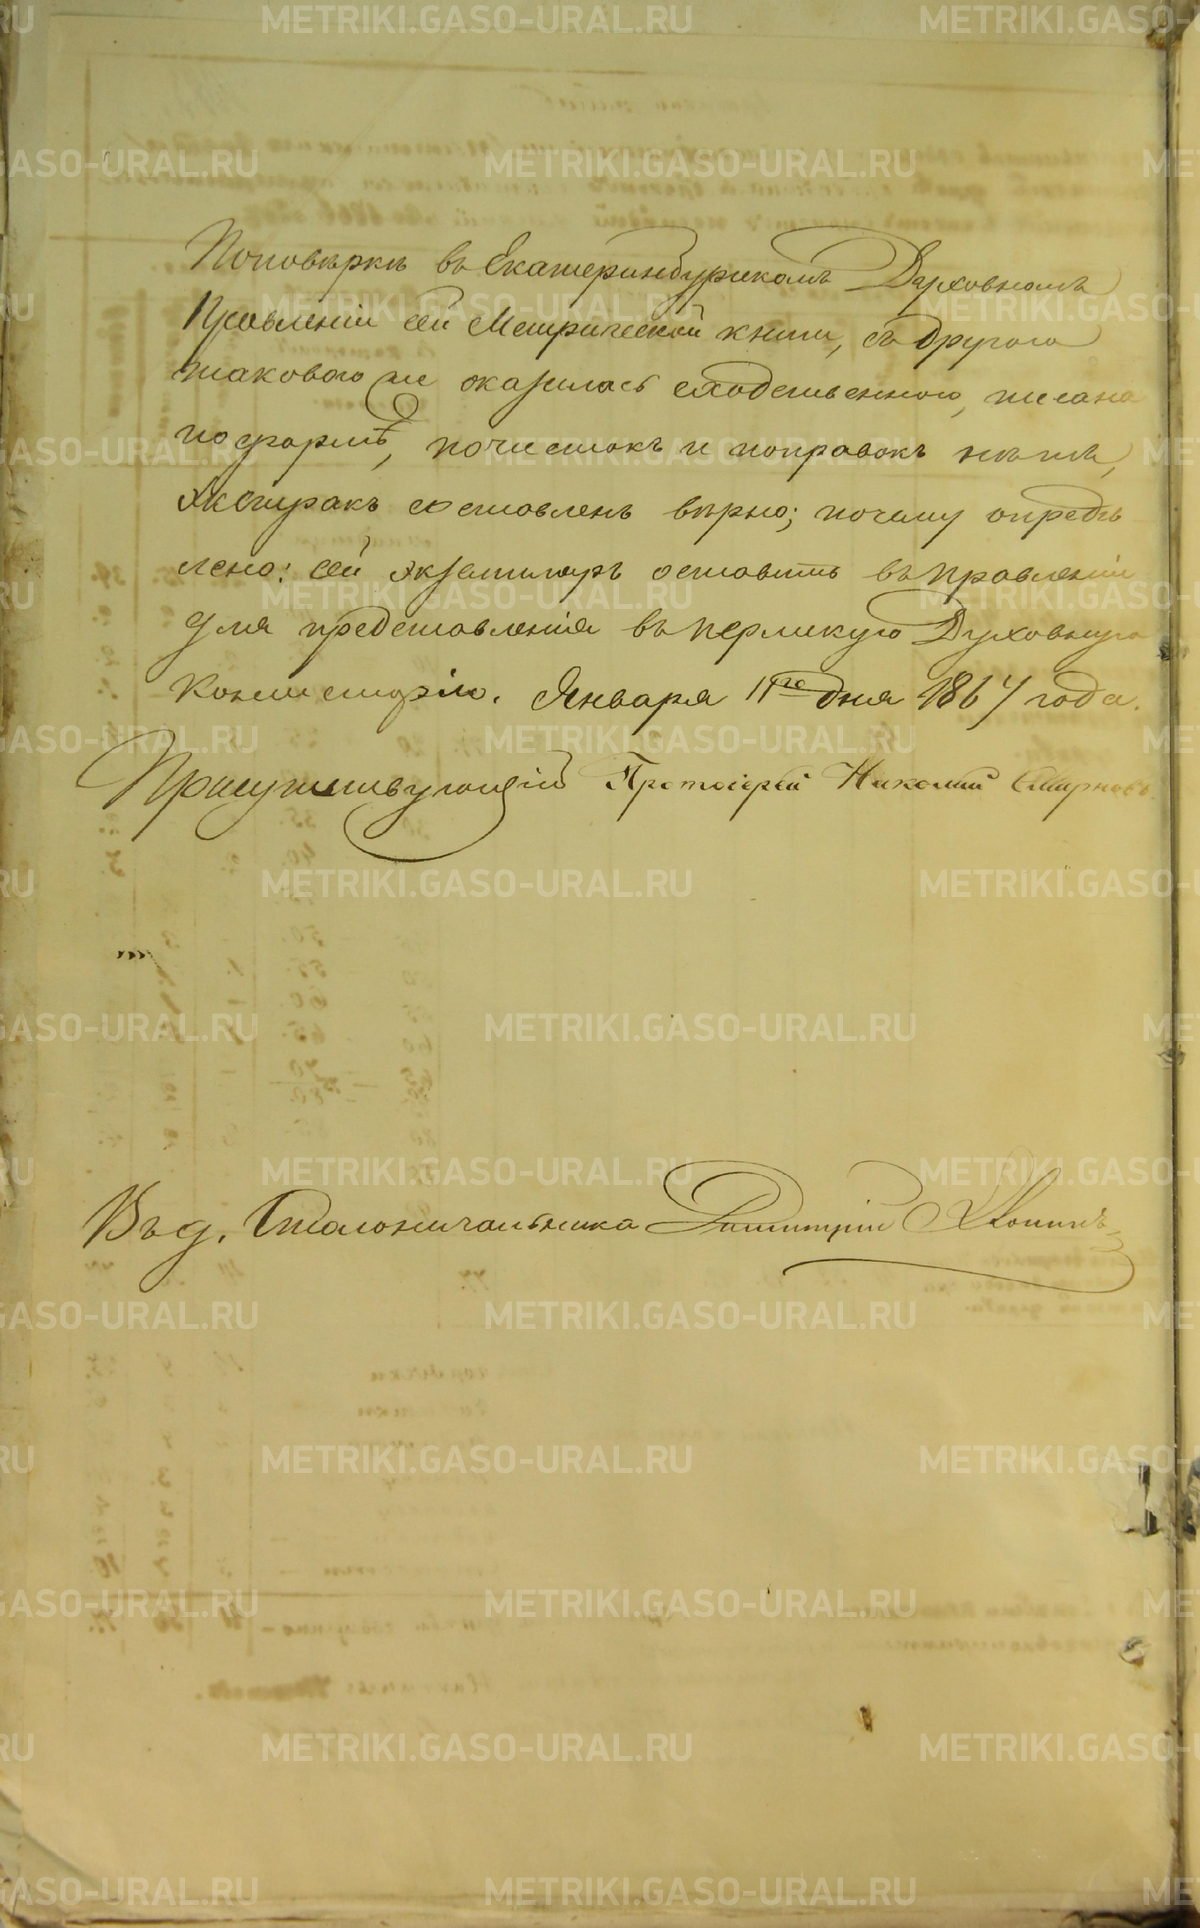 Поповѣркѣ въ Екатеринбургскомъ Духовномъ
Правленіи сей Метрической книги, съ другою
таковою же оказалась сходственною, писана
по формѣ, почистокъ и поправокъ нѣтъ,
экстрактъ составленъ вѣрно; почему опредѣ
лено: сей экземпляръ оставить въ правленіи
для представленія въ пермскую Духовную
Консисторію. Января 11го дня 1867 года.
Присутствующій Протоіерей Николай Смирновъ
Въ д. Столоначальника Димитрій
METRIKI.GASO-URAL.RU